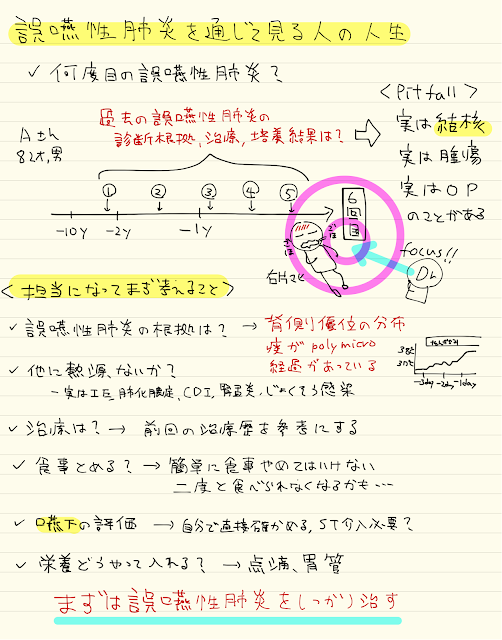 誤嚥性肺炎を通じて見る人の人生
✓ 何度目の誤嚥性肺炎？
<Pitfall>
過去の誤嚥性肺炎の
診断根拠、治療、培養結果は？
⇒ 実は結核
実は腫瘍
実はOP
のことがある
Aさん
82才,男
① ② ③ ④ ⑤
6回目
-10y -2y -1y
ゴホ ゴホ
右片マヒ
focus!!
Dr
<担当になってまず考えること>
✓ 誤嚥性肺炎の根拠は？ → 背側優位の分布
痰がpolymicro
経過があっている
38℃
37℃
-3day -2day -1day
✓ 他に熱源ないか？
- 実はIE、肺化膿症、CDI、腎盂炎、じょくそう感染
✓ 治療は？ → 前回の治療歴を参考にする
✓ 食事とめる？ → 簡単に食事やめてはいけない
二度と食べられなくなるかも…
✓ 嚥下の評価 → 自分で直接確かめる、ST介入必要？
✓ 栄養どうやって入れる？ → 点滴、胃管
まずは誤嚥性肺炎をしっかり治す